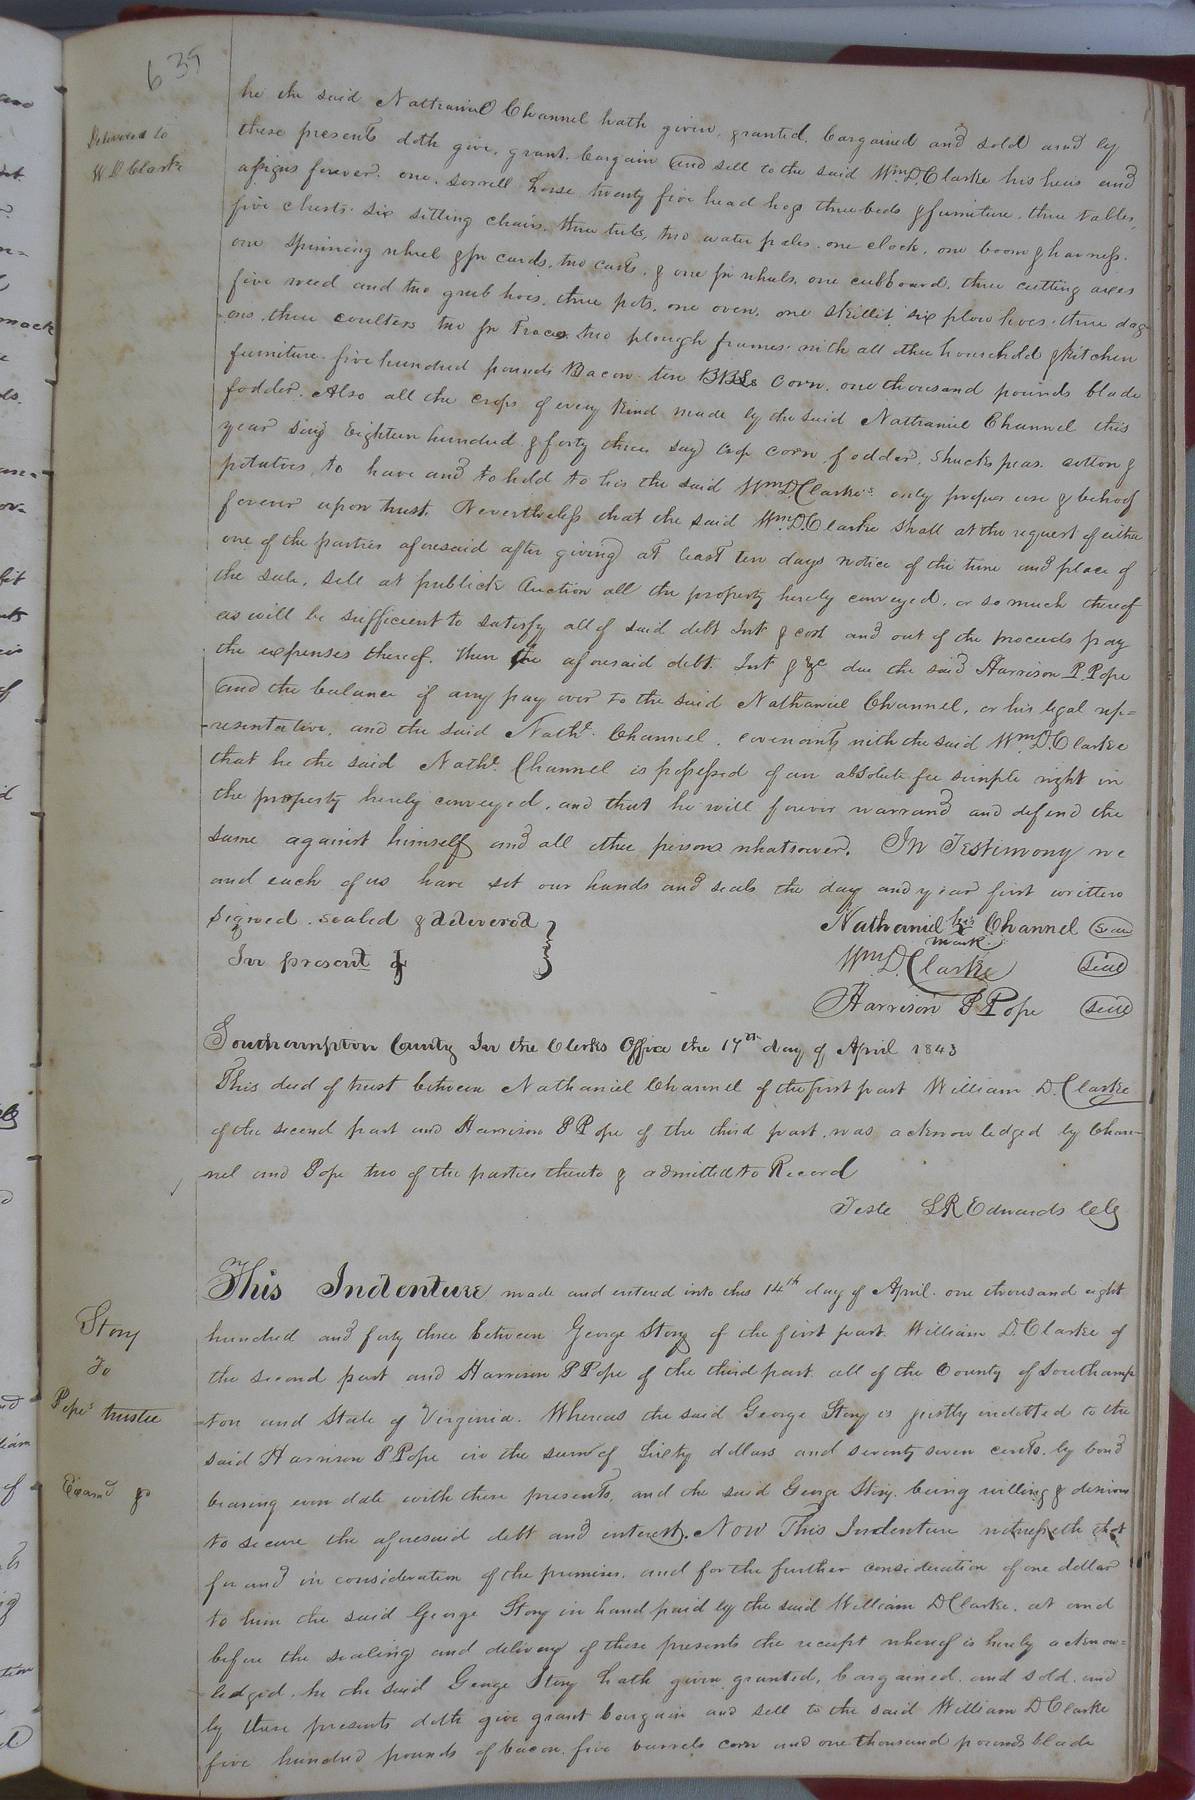 639
Delivered to
W D Clarke
he the said Nathaniel Channel hath given, granted, bargained and sold and by
these presents doth give, grant, bargain and sell to the said Wm. D. Clarke his heirs and
assigns forever, one sorrell horse twenty five head hogs three beds & furniture, three tables,
five chests, six sitting chairs, three tubs, two water pales, one clock, one loom & harness,
one spinning wheel & pr cards, two casks, & one pr wheels, one cubboard, three cutting axes
five weed and two grub hoes, three pots, one oven, one skillit, six plow hoes, three dag-
ons, three coulters two pr Traces two plough frames, with all other household & kitchen
furniture, five hundred pounds Bacon ten BBLs corn, one thousand pounds blade
fodder. Also all the crops of every kind made by the said Nathaniel Channel this
year say Eighteen hundred & forty three say crop corn, fodder, shucks peas, cotton &
potatoes, to have and to hold to his the said Wm. D. Clarke's only proper use & behoof
forever upon trust. Nevertheless that the said Wm. D. Clarke shall at the request of either
one of the parties aforesaid after giving at least ten days notice of the time and place of
the sale, sell at publick Auction all the property hereby conveyed, or so much thereof
as will be sufficient to satisfy all of said debt Int & cost and out of the proceeds pay
the expenses thereof. Then the aforesaid debt Int & &c due the said Harrison P. Pope
and the balance if any pay over to the said Nathaniel Channel, or his legal rep=
-resentative, and the said Nathl. Channel, covenants with the said Wm. D. Clarke
that he the said Nathl. Channel is possessed of an absolute fee simple right in
the property hereby conveyed, and that he will forever warrand and defend the
same against himself and all other persons whatsoever. In Testimony we
and each of us have set our hands and seals the day and year first written
Signed, sealed & delivered
In present of
Nathaniel his Channel Seal
mark
Wm. D. Clarke Seal
Harrison P Pope Seal
Southampton County In the Clerks Office the 17th day of April 1843
This deed of trust between Nathaniel Channel of the first part William D. Clarke
of the second part and Harrison P Pope of the third part, was acknowledged by Chan-
nel and Pope two of the parties thereto & admitted to Record
Teste LR Edwards
Story
To
Pope's trustee
Exam'd
This Indenture made and entered into this 14th day of April one thousand eight
hundred and forty three between George Story of the first part William D. Clarke of
the second part and Harrison P Pope of the third part all of the County of Southamp
=ton and State of Virginia. Whereas the said George Story is justly indetted to the
said Harrison P Pope in the sum of Sixty dollars and seventy seven cents, by bond
bearing even date with these presents, and the said George Story, being willing & desirous
to secure the aforesaid debt and interest. Now This Indenture witnesseth that
for and in consideration of the premises, and for the further consideration of one dollar
to him the said George Story in hand paid by the said William D Clarke, at and
before the sealing and delivery of these presents the receipt whereof is hereby acknow=
ledged, he the said George Story hath given, granted, bargained, and sold, and
by these presents doth give grant bargain and sell to the said William D Clarke
five hundred pounds of bacon, five barrels corn and one thousand pounds blade